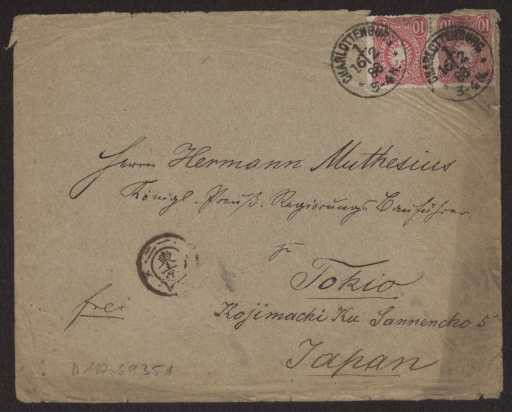 10 10
CHARLOTTENBURG 1
16/2 88
3-4 N.
CHARLOTTENBURG
16/2 88
3-4 N.
Herrn Hermann Muthesius
Königl. Preuß. Regierungs Bauführer
zu
Tokio
Kojimachi Ku Sannencho 5
Japan
frei